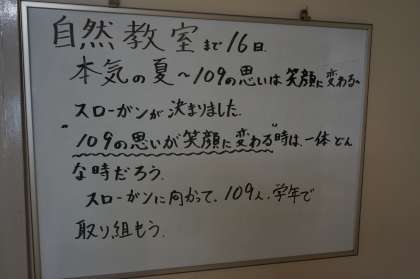 自然教室まで16日
本気の夏〜109の思いは笑顔に変わる〜
スローガンが決まりました。
"109の思いが笑顔に変わる"時は、一体どん
な時だろう。
スローガンに向かって、109人、学年で
取り組もう。